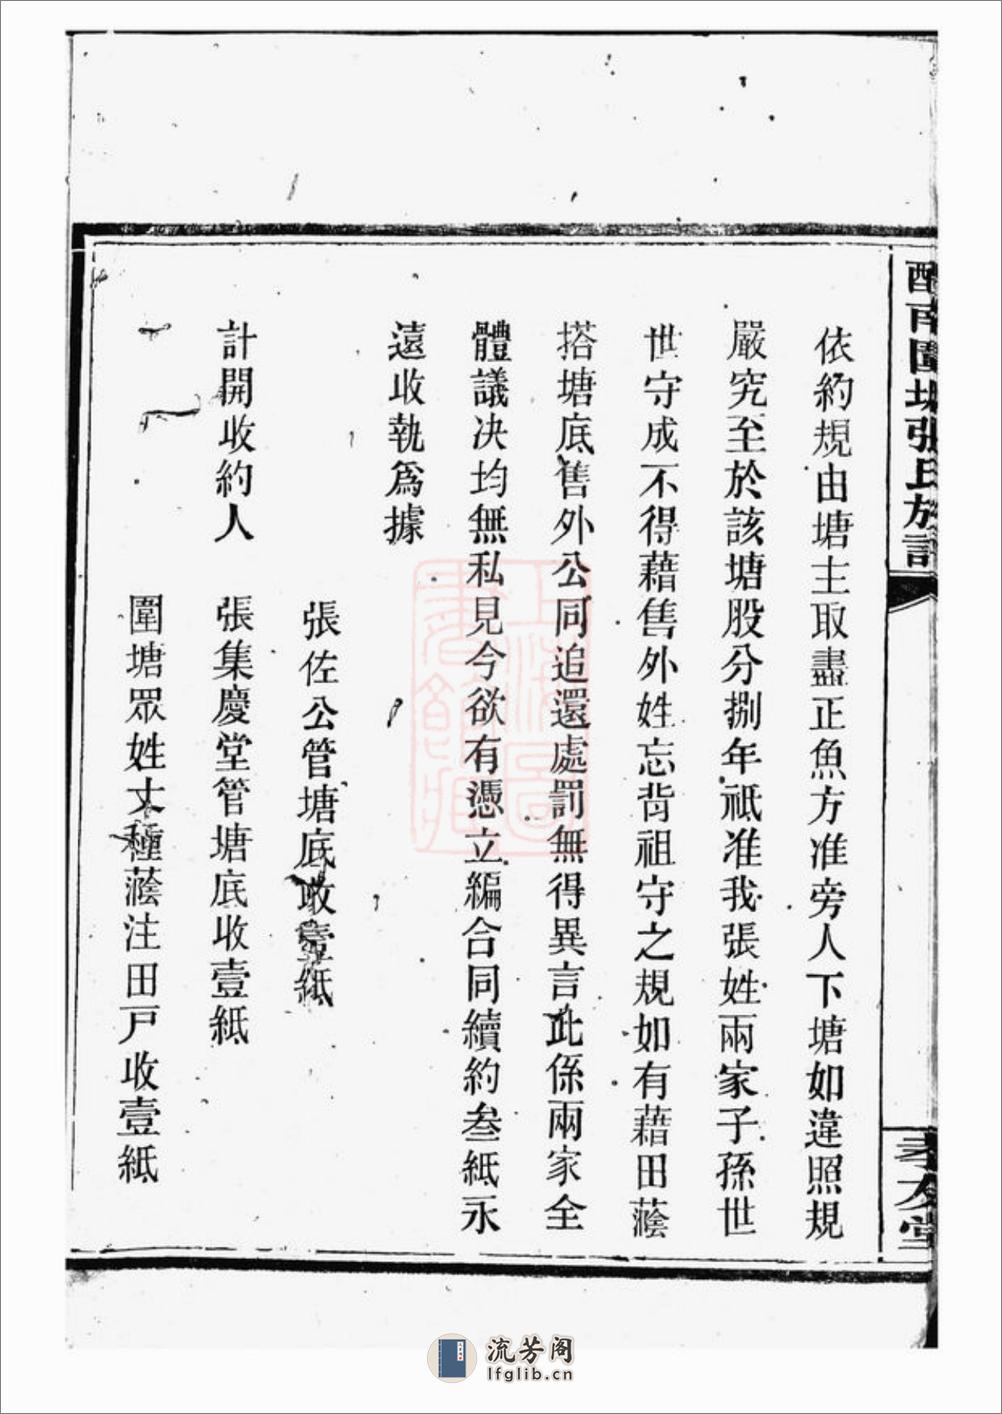 依約規由塘主取盡正魚方准旁人下塘如違照規
嚴究至於該塘股分捌年祇准我張姓兩家子孫世
世守成不得藉售外姓忘背祖守之規如有藉田蔭
搭塘底售外公同追還處罰無得異言此係兩家全
體議決均無私見今欲有憑立編合同續約叁紙永
遠收執爲據
張佐公管塘底收壹紙
計開收約人　張集慶堂管塘底收壹紙
圍塘眾姓丈種蔭注田戸收壹紙
南圍塘張氏族譜
孝友堂
上海圖書館藏
流芳阁
lfglib.cn